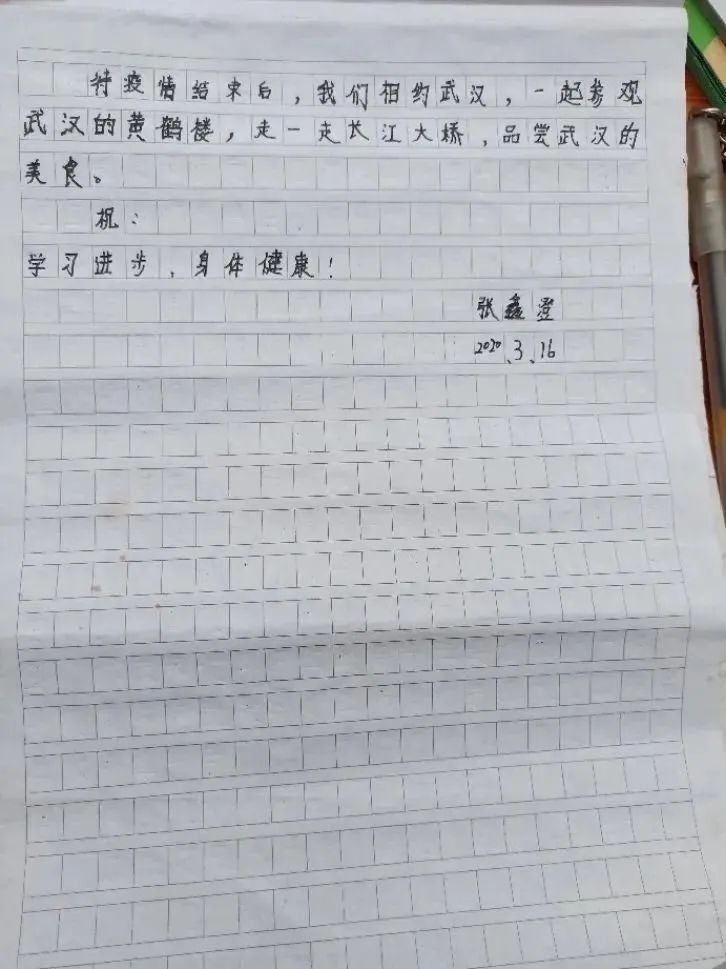 待疫情结束后，我们相约武汉，一起参观
武汉的黄鹤楼，走一走长江大桥，品尝武汉的
美食。
祝：
学习进步，身体健康！
张鑫澄
2020.3.16